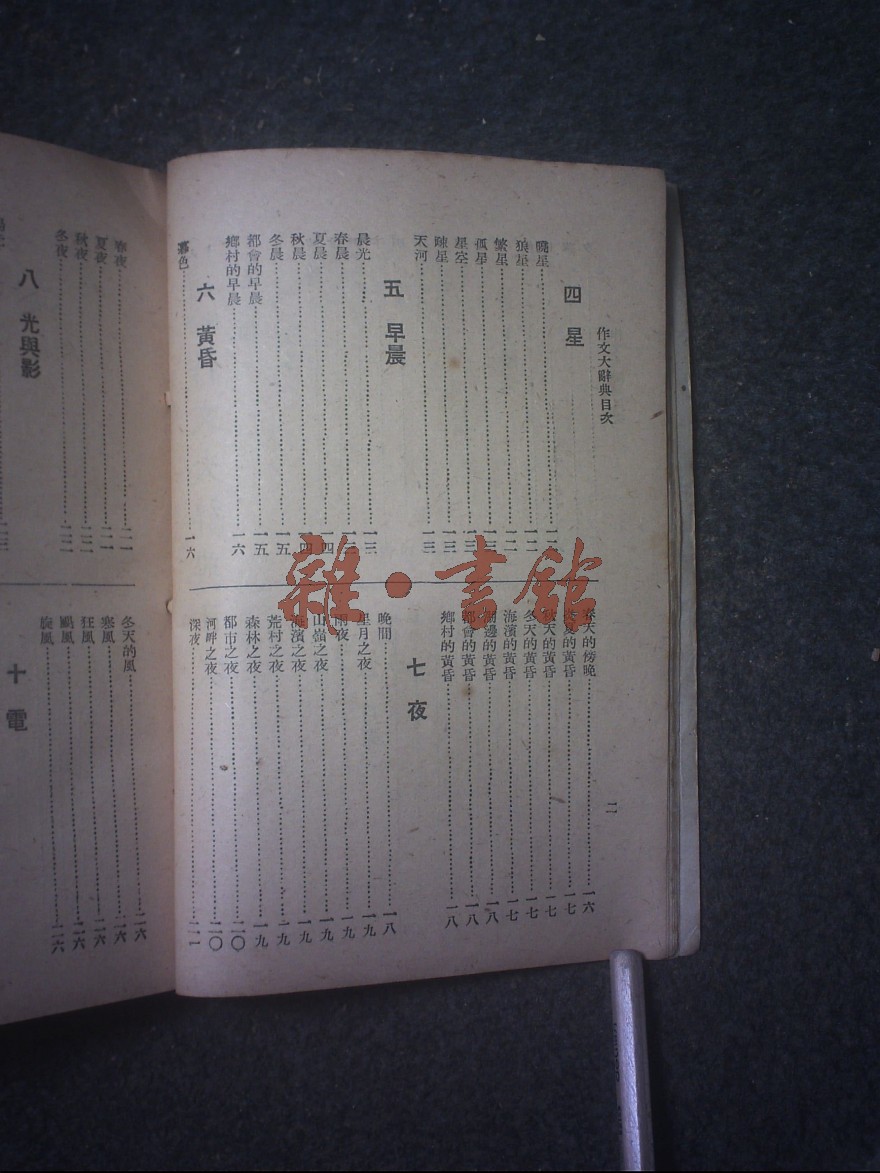 作文大辭典目次
二
四 星
曉星 一二
狼星 一二
繁星 一二
孤星 一三
星空 一三
疎星 一三
天河 一三
五 早晨
晨光 一三
春晨 一三
夏晨 一四
秋晨 一四
冬晨 一五
都會的早晨 一五
鄉村的早晨 一六
六 黃昏
暮色 一六
春天的傍晚 一六
夏的黃昏 一七
秋天的黃昏 一七
冬天的黃昏 一七
海濱的黃昏 一七
湖邊的黃昏 一八
都會的黃昏 一八
鄉村的黃昏 一八
七 夜
晚間 一八
星月之夜 一九
雨夜 一九
山嶺之夜 一九
海濱之夜 一九
荒村之夜 一九
森林之夜 一九
都市之夜 二〇
河畔之夜 二〇
深夜 二一
春夜 二一
夏夜 二一
秋夜 二二
冬夜 二二
八 光與影
二三
冬天的風 二六
寒風 二六
狂風 二六
颶風 二六
旋風 二六
十 電
雜·書館